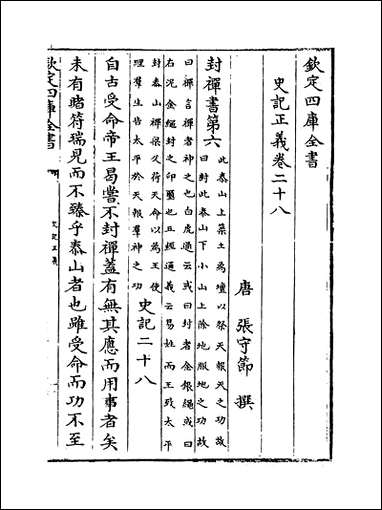 欽定四庫全書
史記正義卷二十八
唐 張守節 撰
封禪書第六
此泰山上築土為壇以祭天報天之功故
曰封此泰山下小山上除地報地之功故
曰禪言禪者神之也白虎通云或曰封者金銀繩或曰
石泥金繩封之印璽也五經通義云易姓而王致太平
封泰山禪梁父荷天命以為王使
理羣生告太平於天報羣神之功
史記二十八
自古受命帝王曷嘗不封禪蓋有無其應而用事者矣
未有睹符瑞見而不臻乎泰山者也雖受命而功不至
欽定四庫全書
史記正義